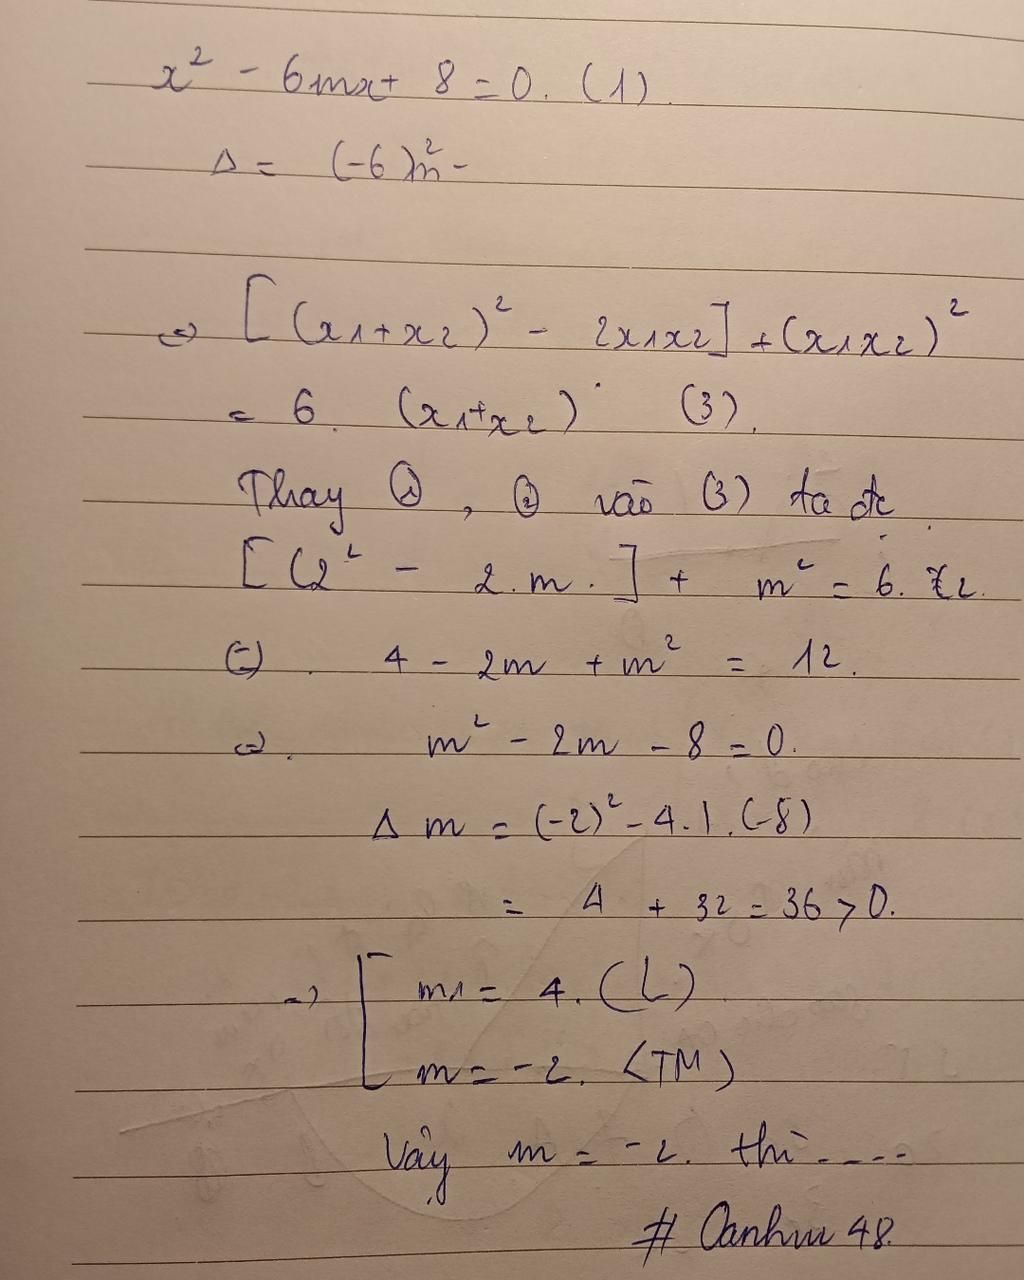 x² - 6mx + 8 = 0. (1)
Δ = (-6)m² -
⇔ [(x1+x2)² - 2x1x2] + (x1x2)²
= 6. (x1+x2) (3).
Thay ①, ② vào (3) ta đc
[(2² - 2.m.] + m² = 6. 2.
⇔. 4 - 2m + m² = 12.
⇔. m² - 2m - 8 = 0.
Δm = (-2)² - 4.1.(-8)
= 4 + 32 = 36 > 0.
⇒ [ m1 = 4. (L)
m = -2. (TM)
Vậy m = -2. thì ....
# Oanhuu 48.